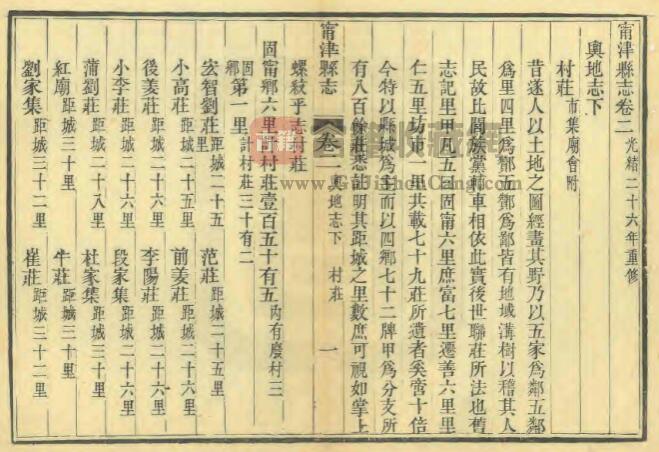 甯津縣志卷二 光緒二十六年重修
輿地志下
村莊 市集廟會附
昔遂人以土地之圖經畫其野乃以五家爲鄰五鄰
爲里四里爲酇五酇爲鄙皆有地域溝樹以稽其人
民故比閭族黨輔車相依此實後世聯莊所法也舊
志記里甲凡五曰固甯六里庶富七里遷善六里里
仁五里坊市一里共載七十九莊所遺者奚啻十倍
今特以縣城爲主而以四鄉七十二牌甲爲分支所
有八百餘莊悉註明其距城之里數庶可視如掌上
甯津縣志 卷二 輿地志下 村莊 一
螺紋乎志村莊
固甯鄉六里 村莊壹百五十有五 內有廢村三
固鄉第一里 計村莊三十有二
宏智劉莊 距城二十五里 范莊 距城二十五里
小高莊 距城二十五里 前姜莊 距城二十六里
後姜莊 距城二十六里 李陽莊 距城二十六里
小李莊 距城二十六里 段家集 距城二十六里
蒲劉莊 距城二十八里 杜家集 距城三十里
紅廟 距城三十里 牛莊 距城三十里
劉家集 距城三十二里 崔莊 距城三十二里
古籍收藏館
www.GuJiShouCang.com